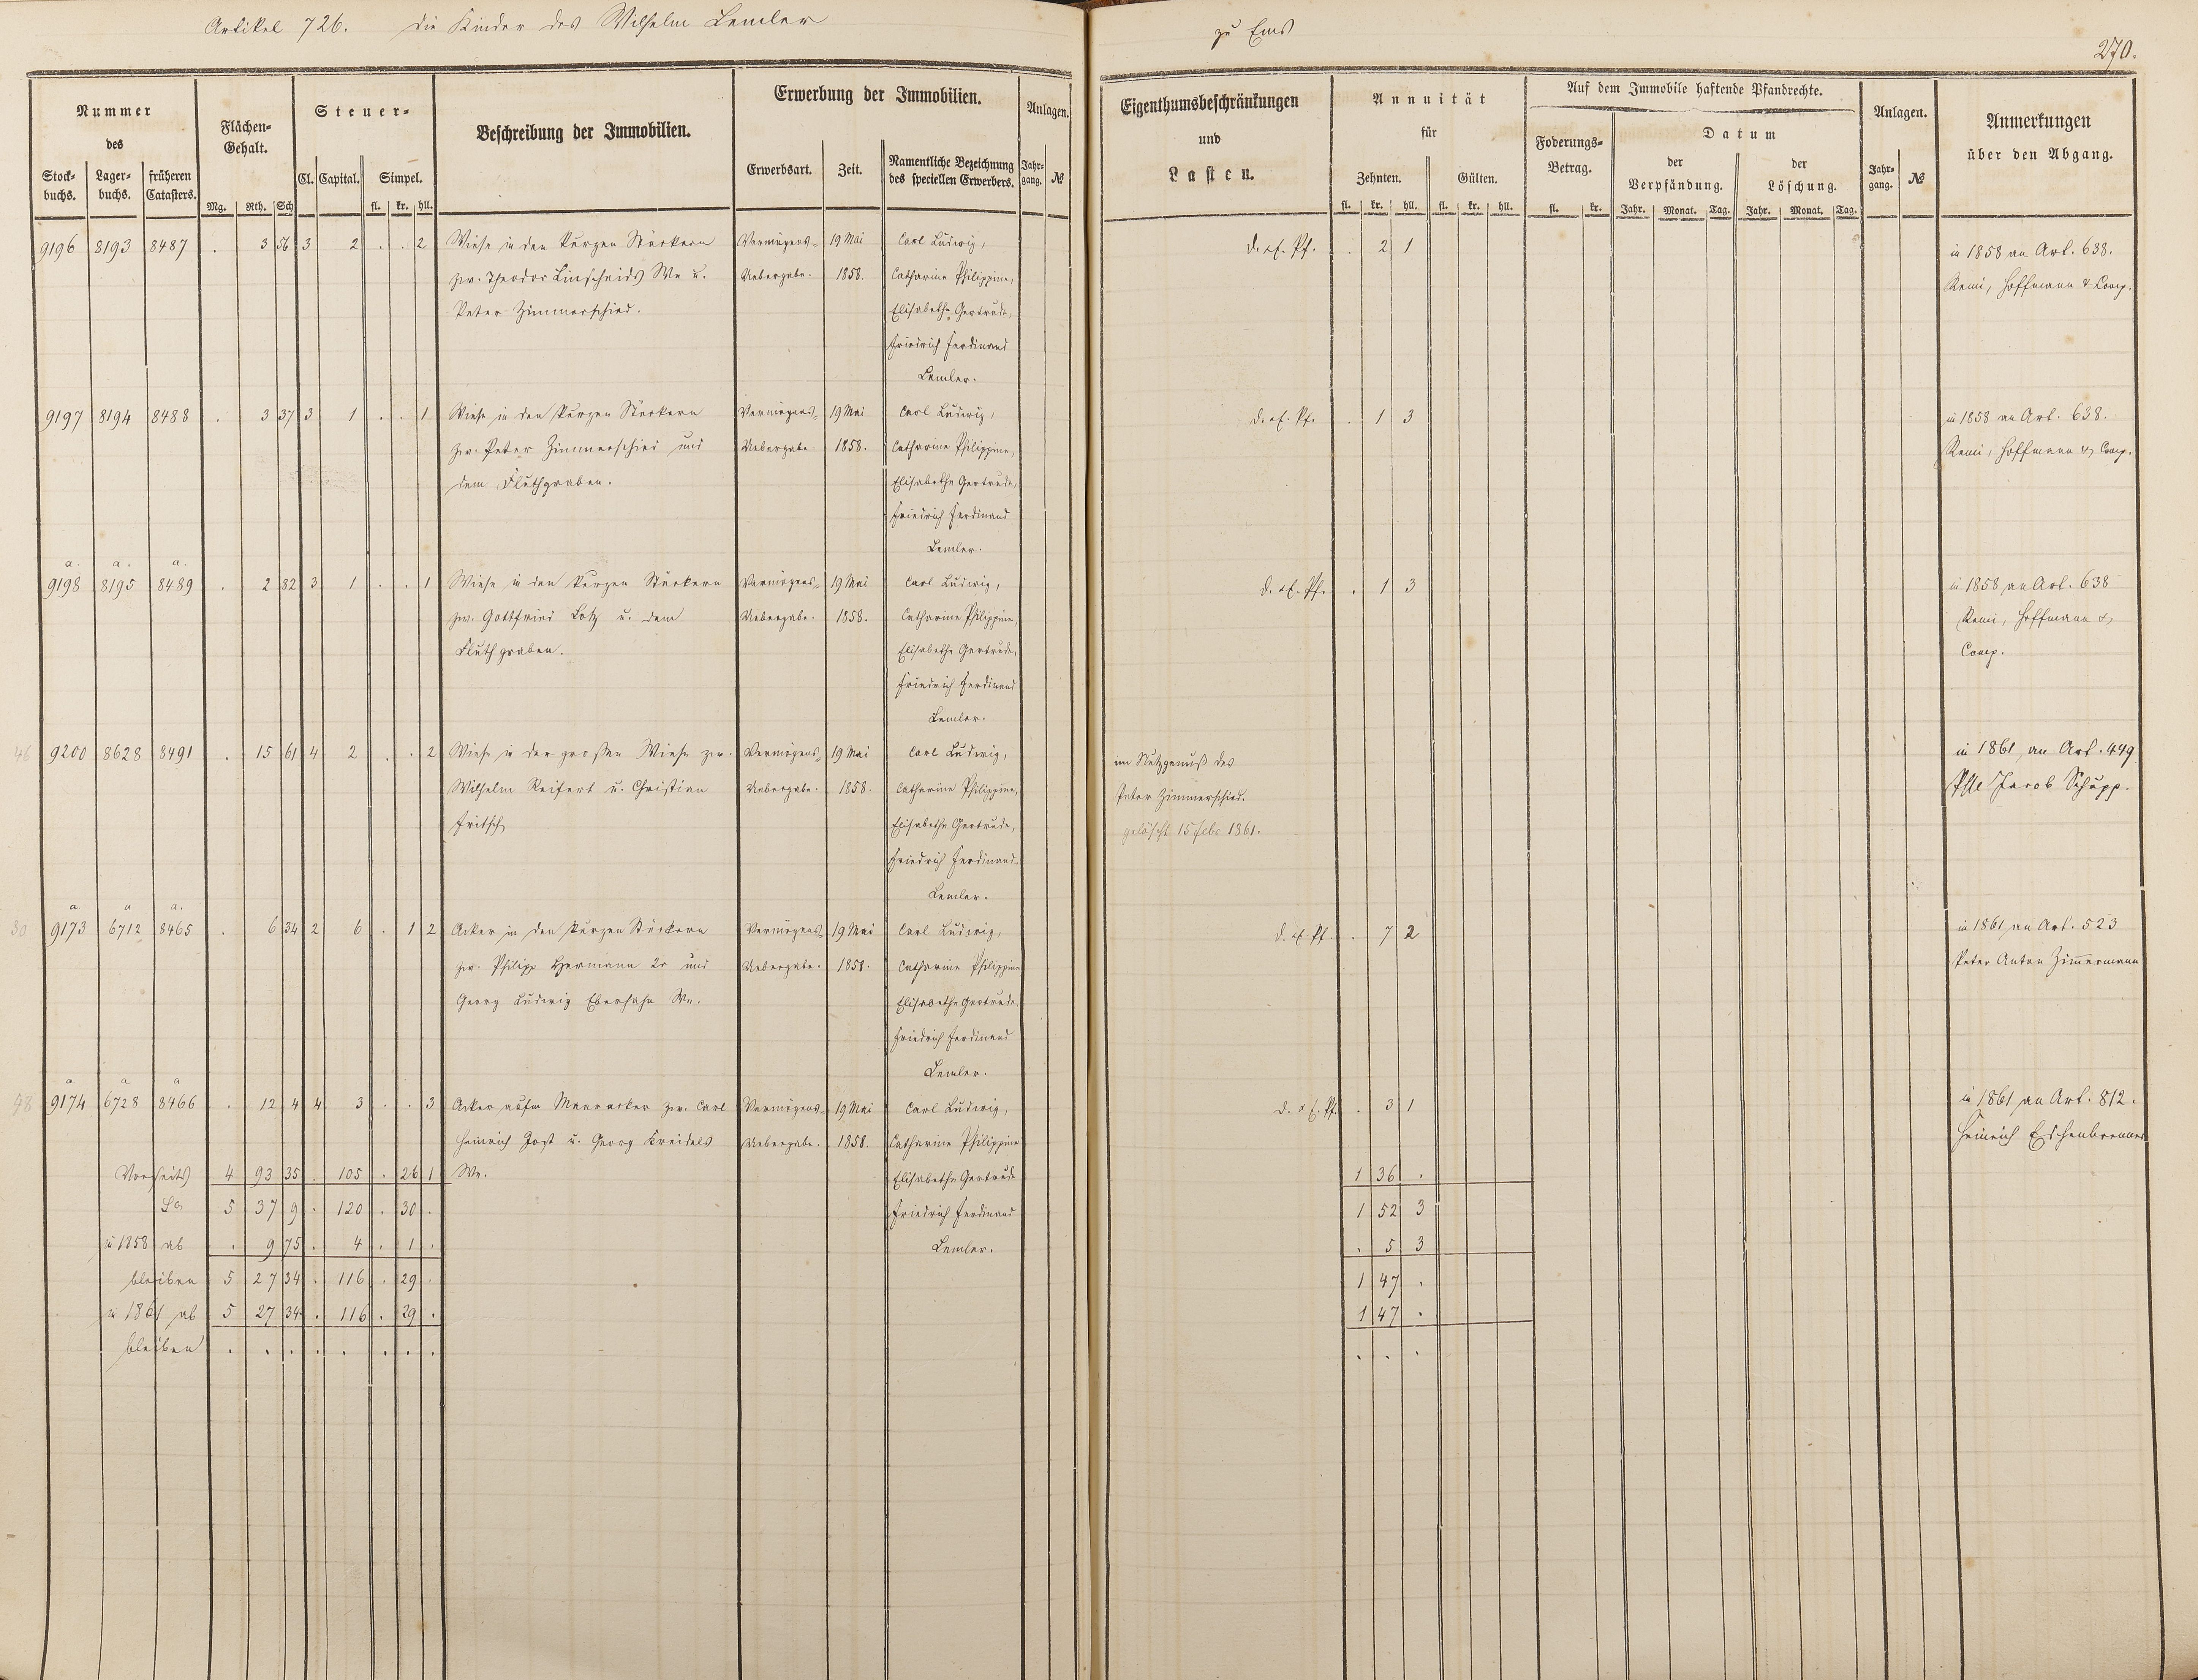 Artikel 726. die Kinder des Wilhelm Lemler zu Ems
270.
Nummer des
Stock-buchs. Lager-buchs. früheren Catasters.
Flächen-Gehalt.
Mg. Rth. Sch
Steuer-
Cl. Capital. Simpel.
fl. kr. hll.
Beschreibung der Immobilien.
Erwerbung der Immobilien.
Erwerbsart. Zeit. Namentliche Bezeichnung des speciellen Erwerbers.
Anlagen.
Jahr-gang. №
Eigenthumsbeschränkungen und Lasten.
Annuität für
Zehnten. Gülten.
fl. kr. hll. fl. kr. hll.
Auf dem Immobile haftende Pfandrechte.
Foderungs-Betrag.
fl. kr.
Datum
der Verpfändung. der Löschung.
Jahr. Monat. Tag. Jahr. Monat. Tag.
Anlagen.
Jahr-gang. №
Anmerkungen über den Abgang.
9196 8193 8487 . 3 56 3 2 . . 2 Wiese in den kurzen Stückern Vermögens- 19 Mai Carl Ludwig, d. . Pf. . 2 1 in 1858 an Art. 638.
zw. Theodor Linscheids We u. Uebergabe. 1858. Catharine Philippine, Remi, Hoffmann & Comp.
Peter Zimmerschied. Elisabethe Gertrude,
Friedrich Ferdinand
Lemler.
9197 8194 8488 . 3 37 3 1 . . 1 Wiese in den kurzen Stückern Vermögens- 19 Mai Carl Ludwig, d. . Pf. . 1 3 in 1858 an Art. 638.
zw. Peter Zimmerschied und Uebergabe 1858. Catharine Philippine, Remi, Hoffmann & Comp.
dem Fluthgraben. Elisabethe Gertrude,
Friedrich Ferdinand
Lemler.
a. a. a.
9198 8195 8489 . 2 82 3 1 . . 1 Wiese in den kurzen Stückern Vermögens- 19 Mai Carl Ludwig, d. . Pf. . 1 3 in 1858 an Art. 638
zw. Gottfried Lotz u. dem Uebergabe. 1858. Catharine Philippine, Remi, Hoffmann &
Fluthgraben. Elisabethe Gertrude, Comp.
Friedrich Ferdinand
Lemler.
46 9200 8628 8491 . 15 61 4 2 . . 2 Wiese in der grossen Wiese zw. Vermögens- 19 Mai Carl Ludwig, im Nutzgenuß des in 1861 an Art. 449
Wilhelm Reifert u. Christian Uebergabe. 1858. Catharine Philippine, Peter Zimmerschied. Jacob Schupp.
Fritsch Elisabethe Gertrude, gelöscht 15 Febr 1861.
Friedrich Ferdinand
Lemler.
a a a.
30 9173 6712 8465 . 6 34 2 6 . 1 2 Acker in den kurzen Stückern Vermögens- 19 Mai Carl Ludwig, d. . Pf . 7 2 in 1861 an Art. 523
zw. Philipp Hermann 2r und Uebergabe. 1858. Catharine Philippine Peter Anton Zimmermann
Georg Ludwig Ebershahn We. Elisabethe Gertrude,
Friedrich Ferdinand
Lemler.
a a a
48 9174 6728 8466 . 12 4 4 3 . . 3 Acker aufm Mauracker zw. Carl Vermögens- 19 Mai Carl Ludwig, d. . Pf. . 3 1 in 1861 an Art. 812.
Heinrich Jost u. Georg Kreidels Uebergabe. 1858. Catharine Philippine Heinrich Eschenbrenner
Vorseits 4 93 35 . 105 . 26 1 We. Elisabethe Gertrude 1 36 .
Sa 5 37 9 . 120 . 30 . Friedrich Ferdinand 1 52 3
in 1858 ab . 9 75 . 4 . 1 . Lemler. . 5 3
bleiben 5 27 34 . 116 . 29 . 1 47 .
in 1861 ab 5 27 34 . 116 . 29 . 1 47 .
bleiben . . . . . . . . . . .